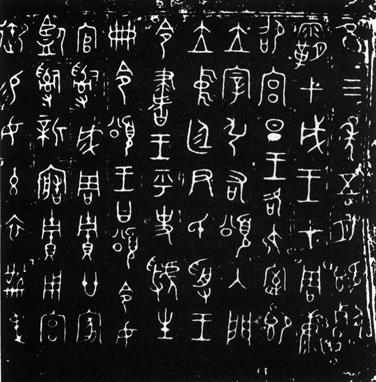 隹三年五月既死
霸甲戌王才周康
卲宮旦王各大室即
立宰弘右頌入門
立中廷尹氏受王
令書王乎史虢生
冊令頌王曰頌令女
官𤔲成周貯廿家
監𤔲新造貯用宮
御易女玄衣黹屯